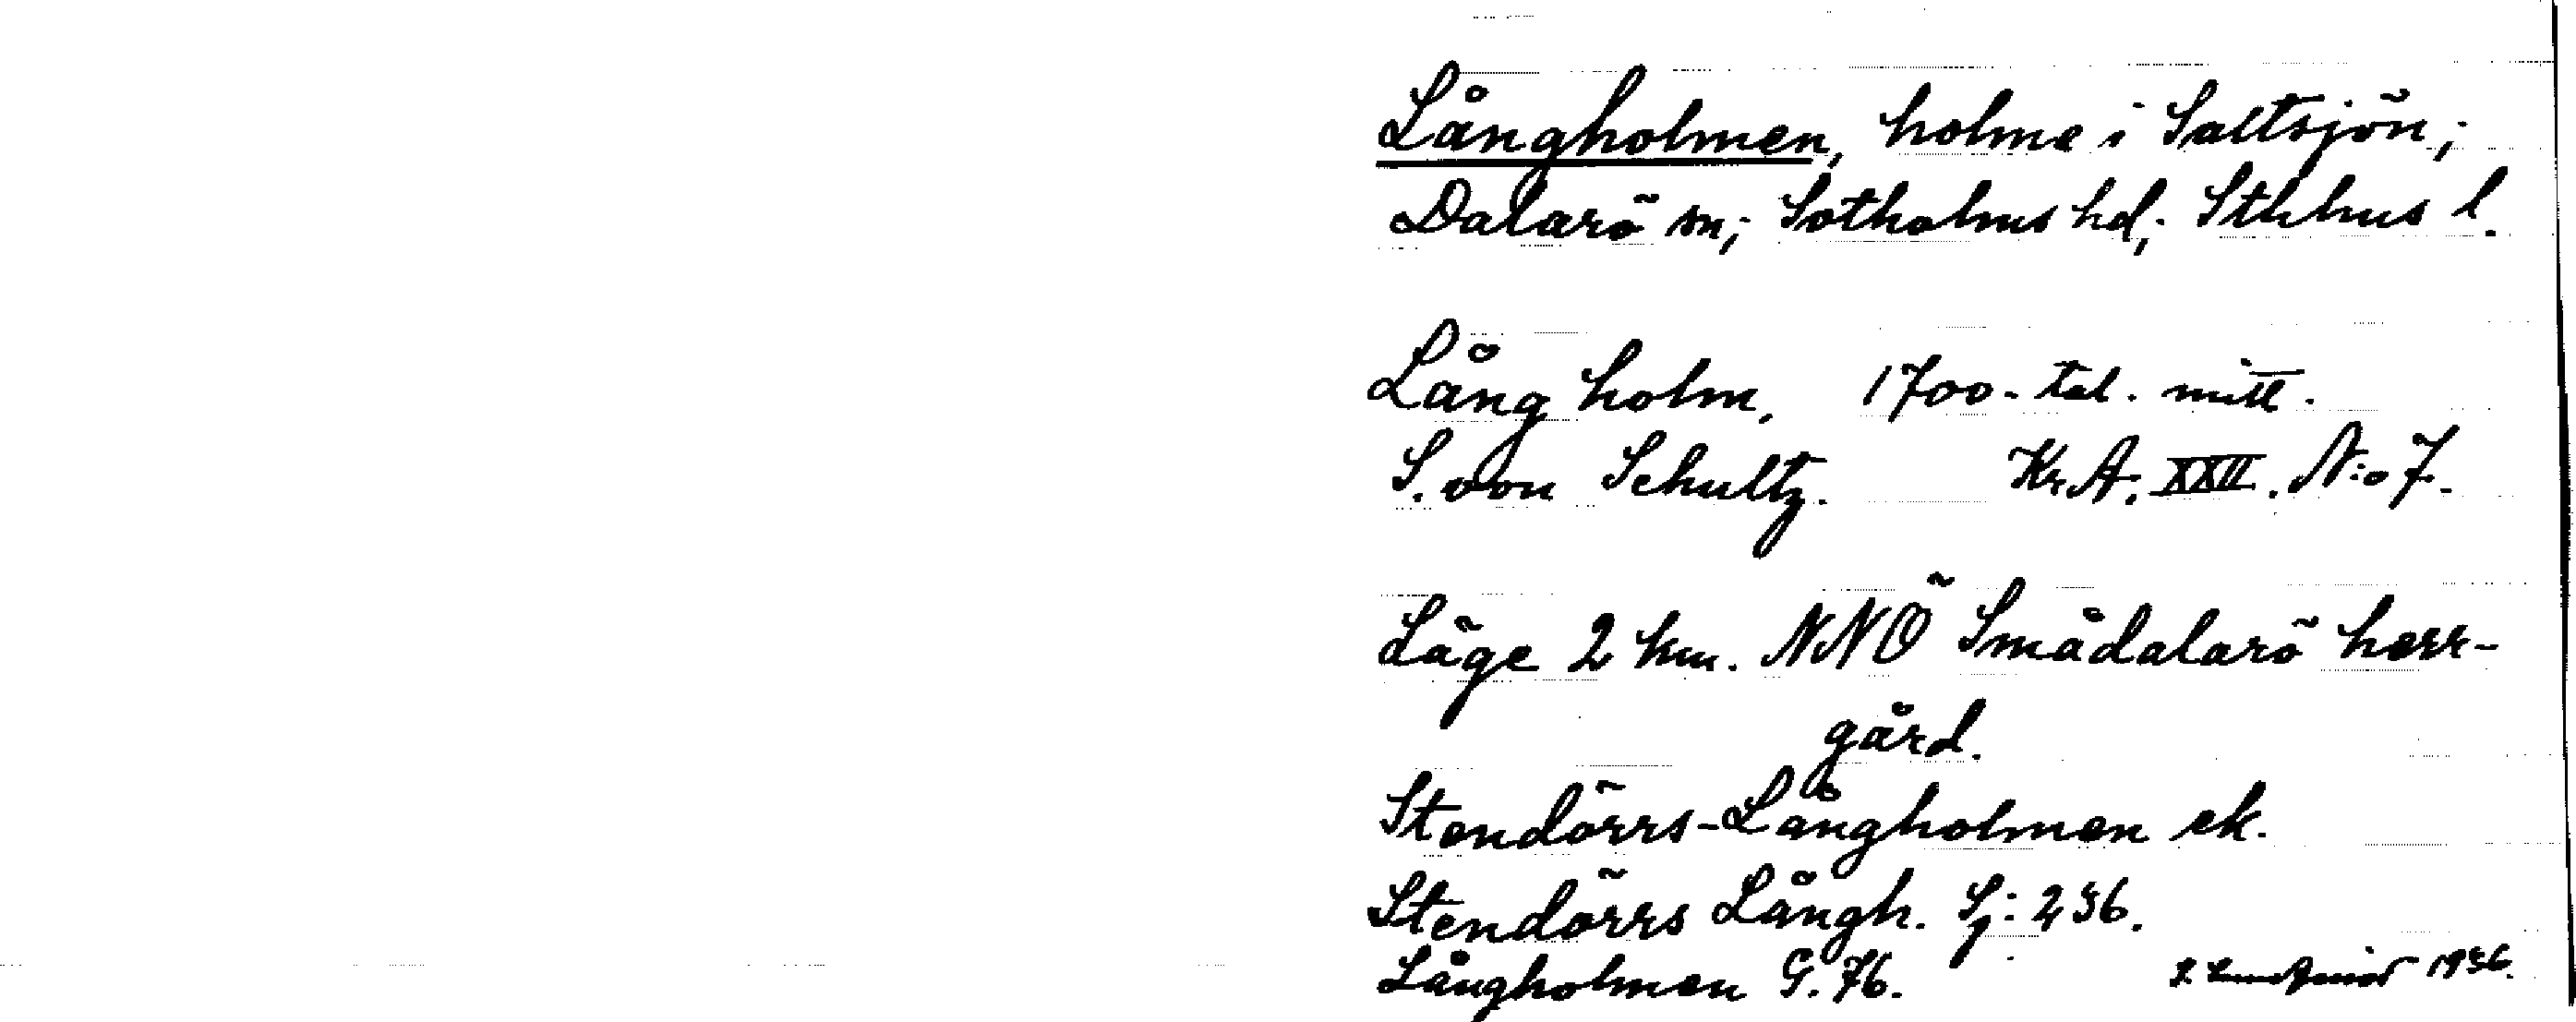 Långholmen, holme i Saltsjön;
Dalarö sn; Sotholms hd; Sthlms l.
Långholm, 1700-tal. mitt.
S. von Schultz. Kr.A; XXII. N:o 7.
Läge 2 km. NNÖ Smådalarö herr-
gård.
Stendörrs-Långholmen ek.
Stendörrs Långh. Sj: 236.
Långholmen G. 76.
1936.